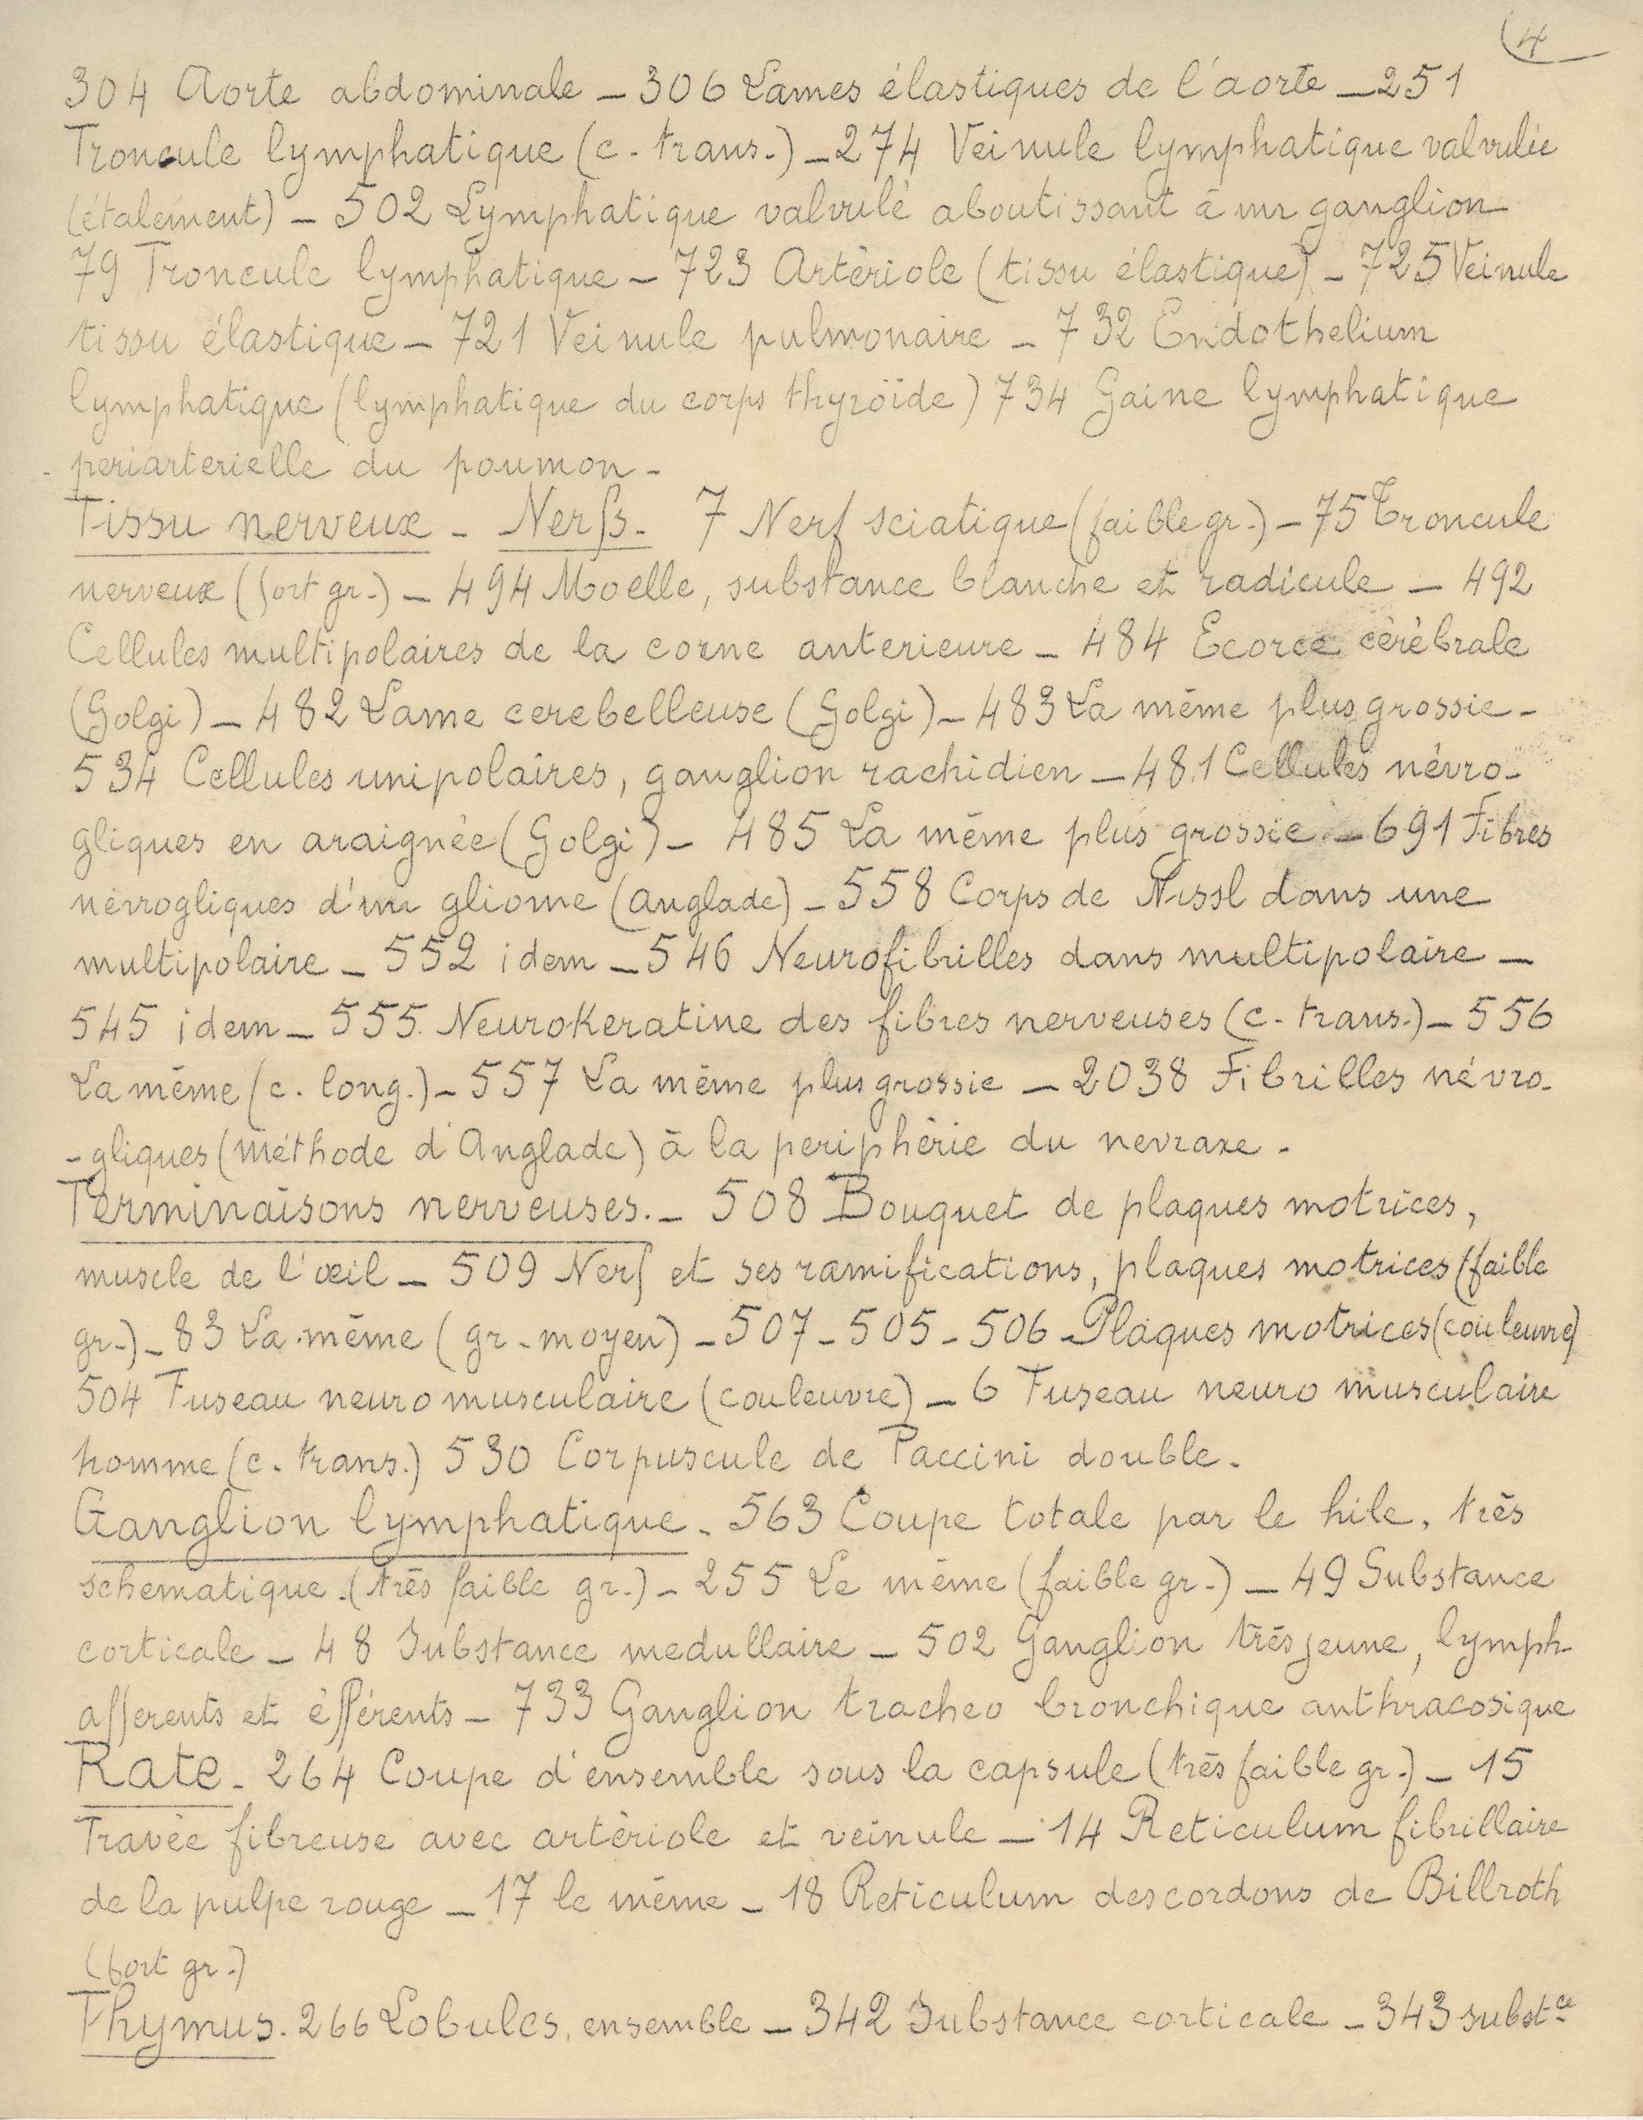 (4
304 Aorte abdominale _ 306 Lames élastiques de l'aorte _ 251
Troncule lymphatique (c. trans.) _ 274 Veinule lymphatique valvulée
(étalement) _ 502 Lymphatique valvulé aboutissant à un ganglion
79 Troncule lymphatique _ 723 Artériole (tissu élastique) _ 725 Veinule
tissu élastique _ 721 Veinule pulmonaire _ 732 Endothelium
lymphatique (lymphatique du corps thyroïde) 734 Gaine lymphatique
periarterielle du poumon _
Tissu nerveux _ Nerfs. 7 Nerf sciatique (faible gr.) _ 75 Troncule
nerveux (fort gr.) _ 494 Moelle, substance blanche et radicule _ 492
Cellules multipolaires de la corne anterieure _ 484 Ecorce cérébrale
(Golgi) _ 482 Lame cerebelleuse (Golgi) _ 483 La même plus grossie _
534 Cellules unipolaires, ganglion rachidien _ 481 Cellules névro-
gliques en araignée (Golgi) _ 485 La même plus grossie _ 691 Fibres
névrogliques d'un gliome (Anglade) _ 558 Corps de Nissl dans une
multipolaire _ 552 idem _ 546 Neurofibrilles dans multipolaire _
545 idem _ 555 Neurokeratine des fibres nerveuses (c. trans.) _ 556
La même (c. long.) _ 557 La même plus grossie _ 2038 Fibrilles névro-
-gliques (méthode d'Anglade) à la periphérie du nevraxe.
Terminaisons nerveuses. _ 508 Bouquet de plaques motrices,
muscle de l'œil _ 509 Nerf et ses ramifications, plaques motrices (faible
gr.) _ 83 La même (gr. moyen) _ 507 _ 505 _ 506 _ Plaques motrices (couleuvre)
504 Fuseau neuro musculaire (couleuvre) _ 6 Fuseau neuro musculaire
homme (c. trans.) 530 Corpuscule de Paccini double.
Ganglion lymphatique. 563 Coupe totale par le hile, très
schematique. (très faible gr.) _ 255 Le même (faible gr.) _ 49 Substance
corticale _ 48 Substance medullaire _ 502 Ganglion très jeune, lymph.
afferents et éfférents _ 733 Ganglion tracheo bronchique anthracosique
Rate _ 264 Coupe d'ensemble sous la capsule (très faible gr.) _ 15
Travée fibreuse avec artériole et veinule _ 14 Reticulum fibrillaire
de la pulpe rouge _ 17 le même _ 18 Reticulum des cordons de Billroth
(fort gr.)
Thymus. 266 Lobules, ensemble _ 342 Substance corticale _ 343 subst.ce